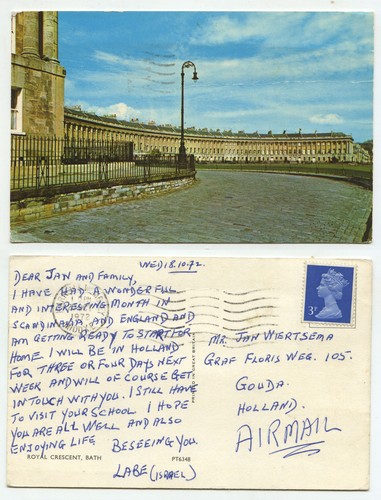 WED 18.10.72.
DEAR JAN AND FAMILY,
I HAVE HAD A WONDERFUL
AND INTERESTING MONTH IN
SCANDINAVIA, AND ENGLAND AND
AM GETTING READY TO START FOR
HOME. I WILL BE IN HOLLAND
FOR THREE OR FOUR DAYS NEXT
WEEK AND WILL OF COURSE GET
IN TOUCH WITH YOU. I STILL HAVE
TO VISIT YOUR SCHOOL. I HOPE
YOU ARE ALL WELL AND ALSO
ENJOYING LIFE
BESEEING YOU.
LABE (ISRAEL)
ROYAL CRESCENT, BATH
PT6348
1972
3P
MR. JAN WIERTSEMA
GRAF FLORIS WEG. 105.
GOUDA.
HOLLAND.
AIRMAIL